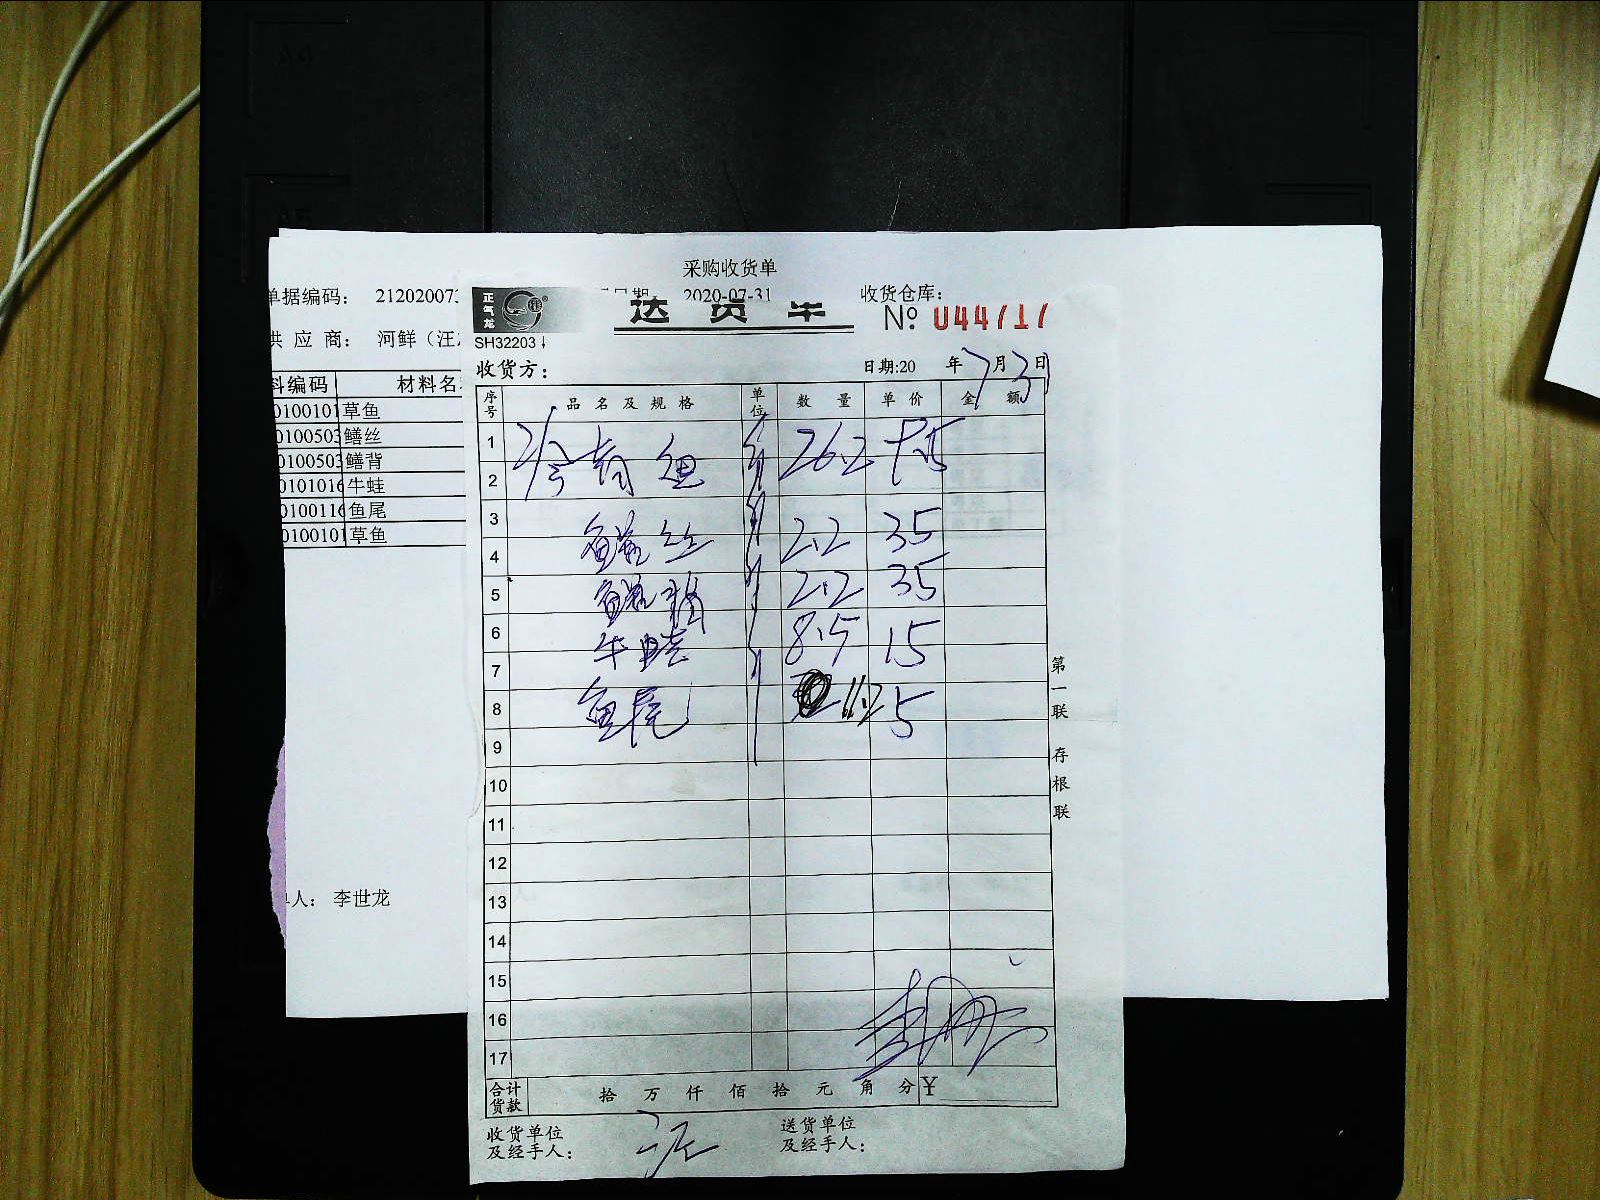 采购收货单
单据编码： 21202007
2020-07-31
收货仓库：
供 应 商： 河鲜（汪
编码 材料名
0100101 草鱼
0100503 鳝丝
0100503 鳝背
0101016 牛蛙
0100116 鱼尾
0100101 草鱼
人： 李世龙
正气龙
送 货 单
SH32203
№ 044717
收货方：
日期:20 年 7 月 31 日
序号 品 名 及 规 格 单位 数 量 单 价 金 额
1 26.2
2
3
4 鳝丝 2.2 35
5 2.2 35
6 牛蛙 8.5 15
7
8 鱼尾 11.2 5
9
10
11
12
13
14
15
16
17
合计货款 拾 万 仟 佰 拾 元 角 分 ¥
收货单位及经手人： 汪
送货单位及经手人：
第一联 存根联